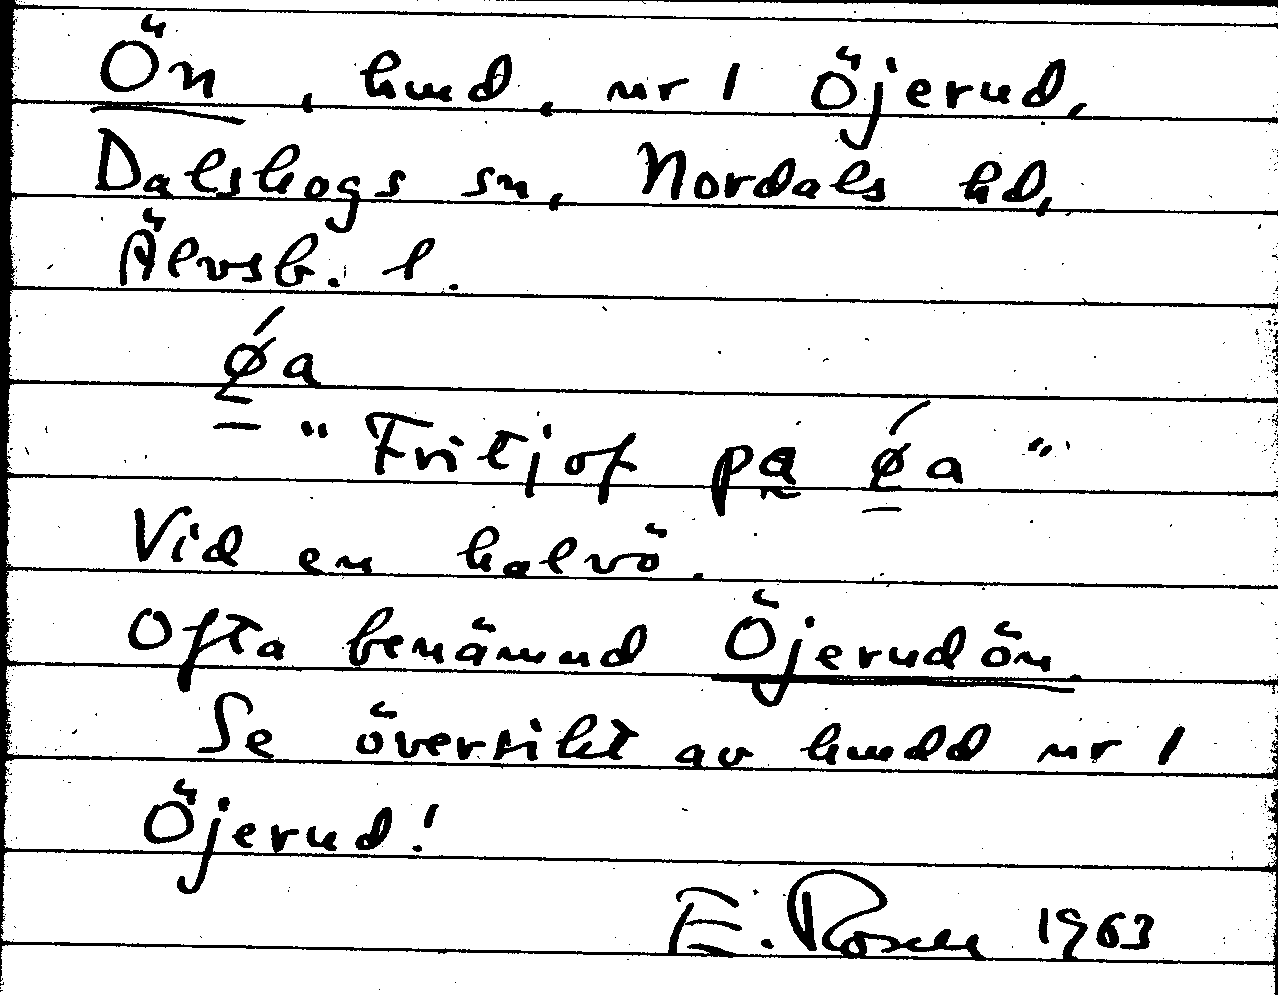 Ön, hmd, nr 1 Öjerud,
Dalskogs sn, Nordals hd,
Älvsb. l.
ǿa
"Fritjof pa ǿa"
Vid en halvö.
Ofta benämnd Öjerudön.
Se översikt av hmdd nr 1
Öjerud!
E. Rosell 1963